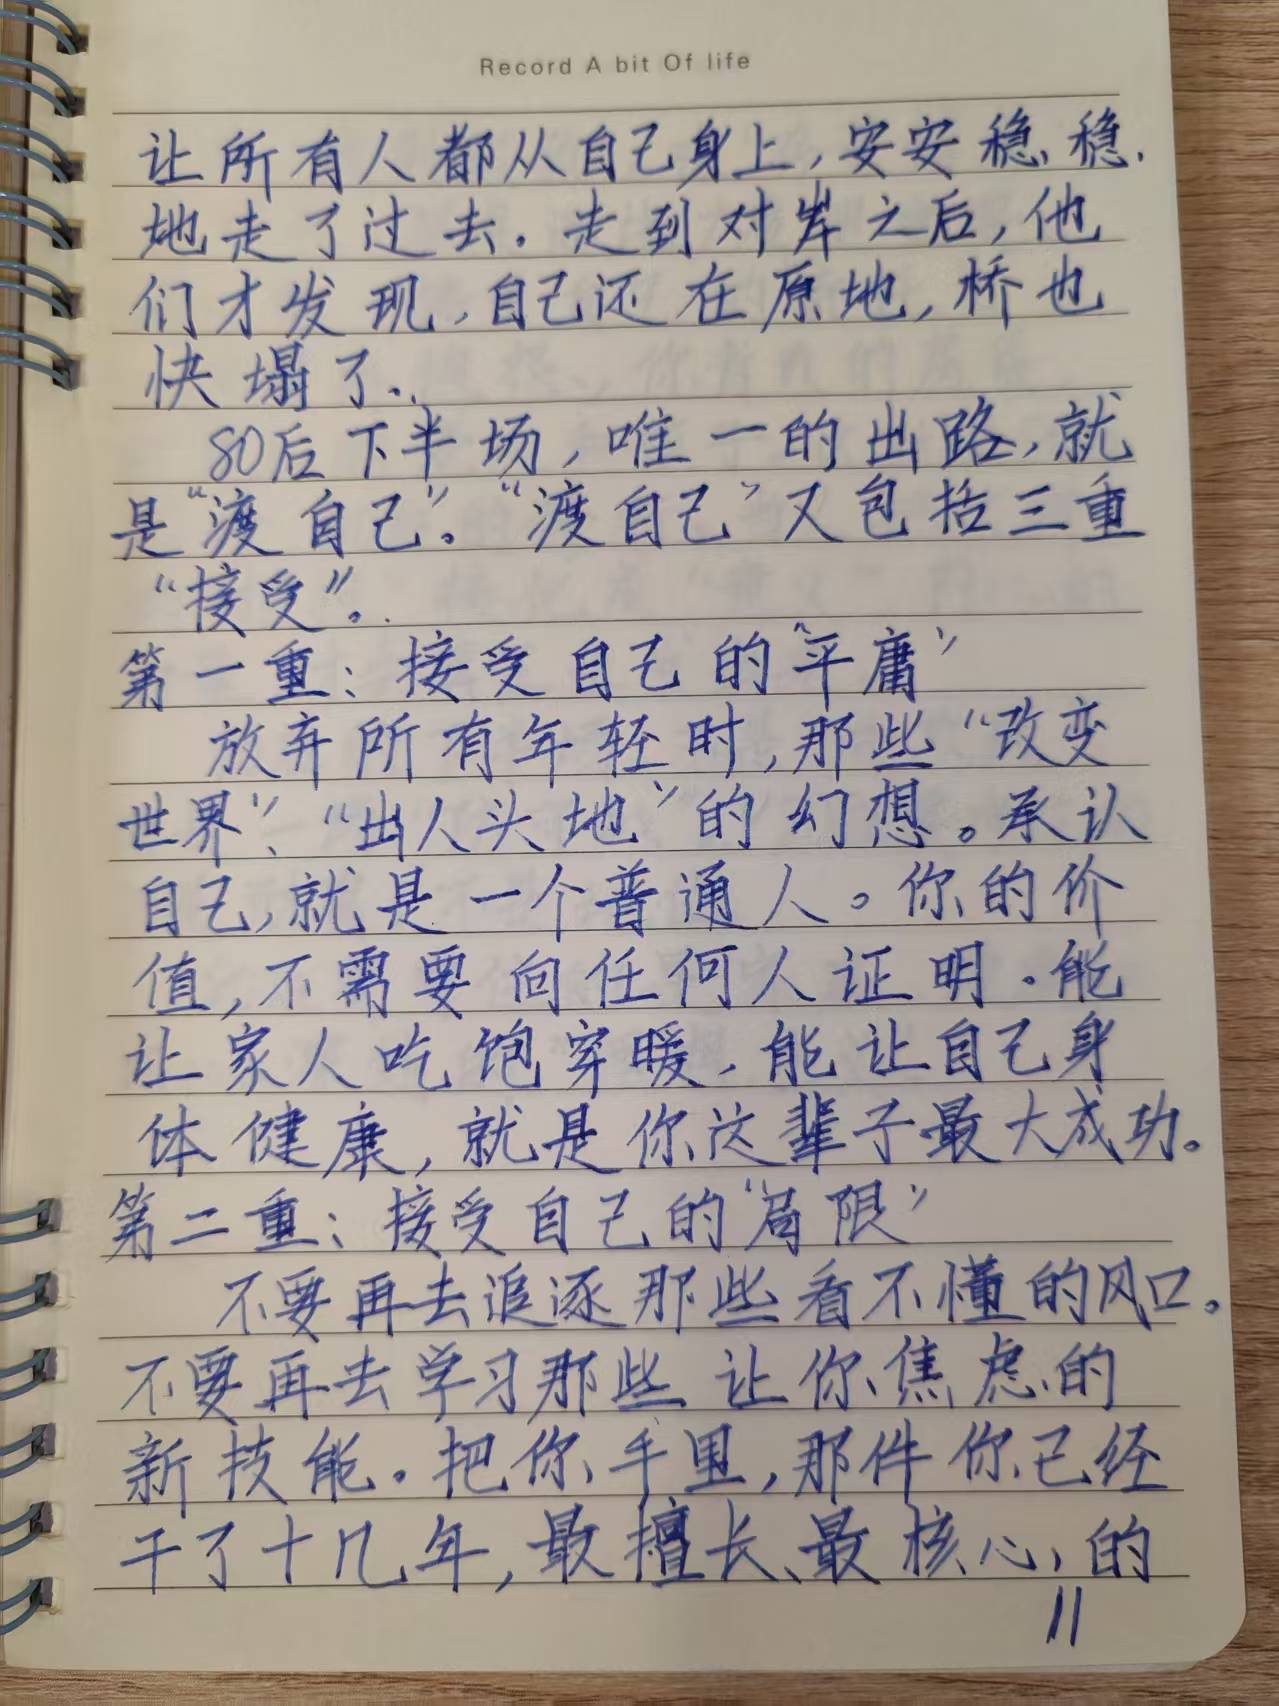 Record A bit Of life
让所有人都从自己身上,安安稳稳
地走了过去.走到对岸之后,他
们才发现,自己还在原地,桥也
快塌了.
80后下半场,唯一的出路,就
是“渡自己”。“渡自己”又包括三重
“接受”。
第一重:接受自己的“平庸”
放弃所有年轻时,那些“改变
世界”、“出人头地”的幻想。承认
自己,就是一个普通人。你的价
值,不需要向任何人证明.能
让家人吃饱穿暖,能让自己身
体健康,就是你这辈子最大成功。
第二重:接受自己的“局限”
不要再去追逐那些看不懂的风口。
不要再去学习那些让你焦虑的
新技能.把你手里,那件你已经
干了十几年,最擅长、最核心,的
11